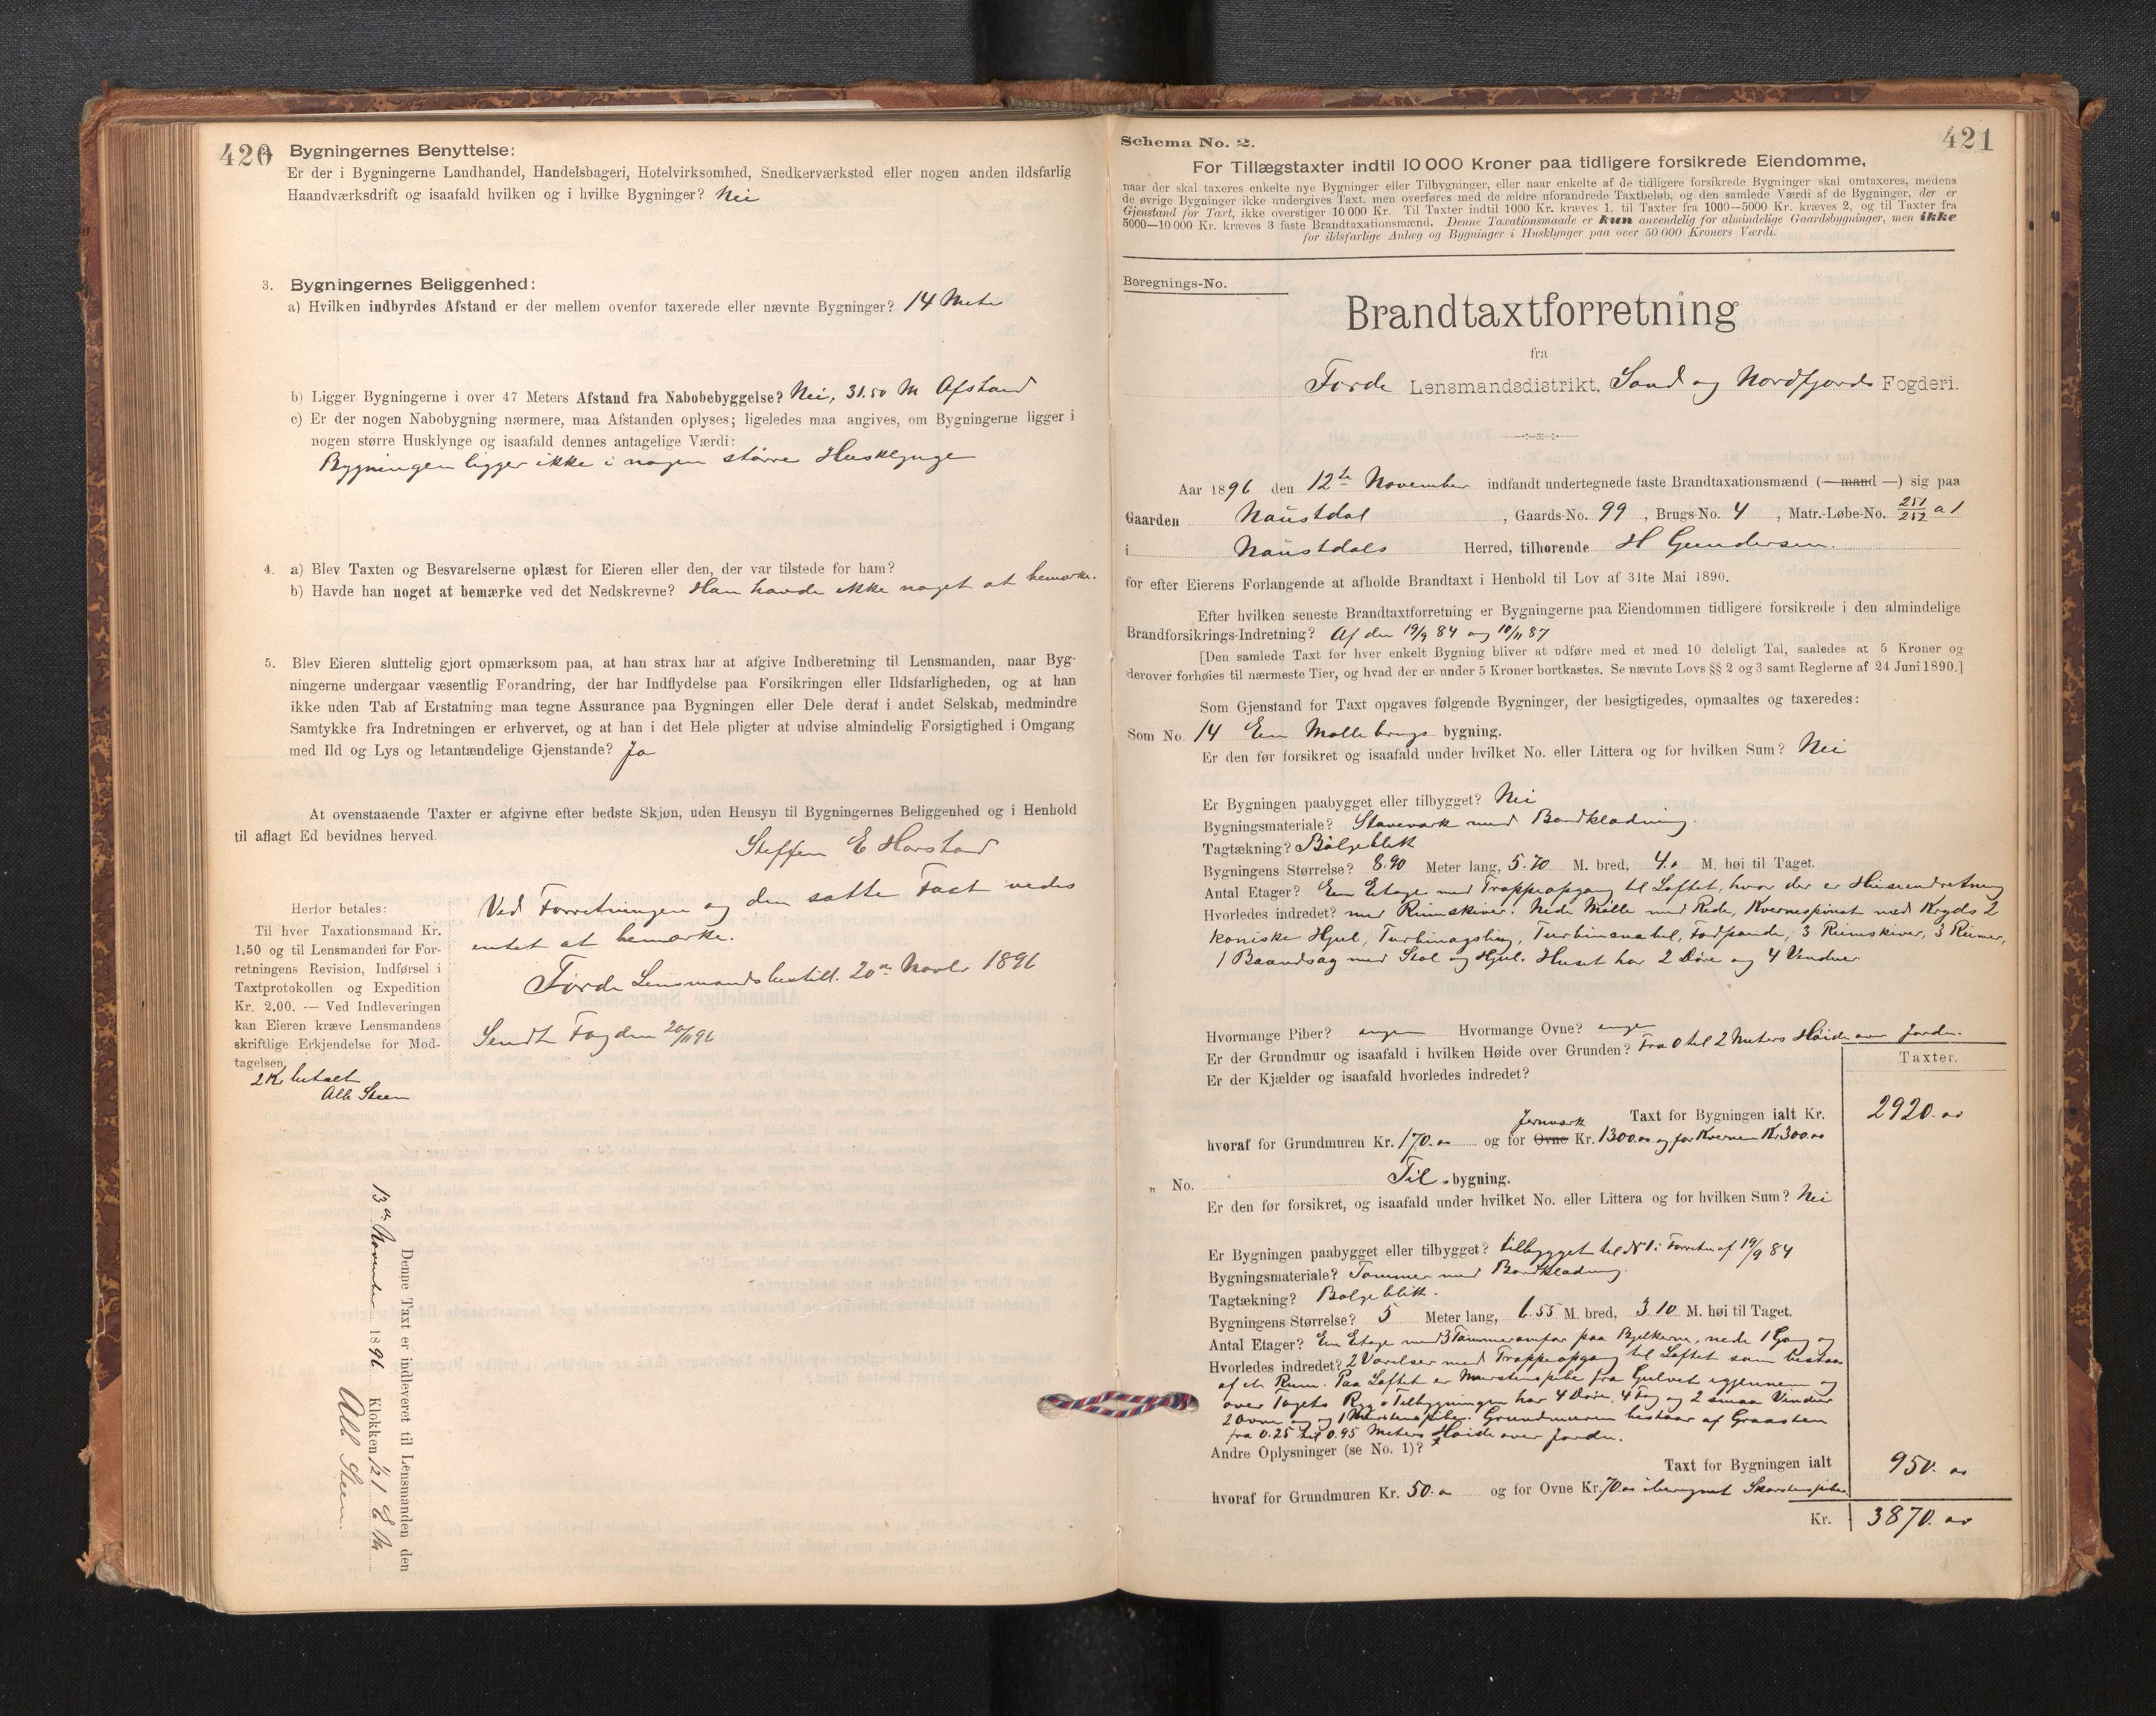 420
2. Bygningernes Benyttelse:
Er der i Bygningerne Landhandel, Handelsbageri, Hotelvirksomhed, Snedkerværksted eller nogen anden ildsfarlig
Haandværksdrift og isaafald hvilken og i hvilke Bygninger? Nei
3. Bygningernes Beliggenhed:
a) Hvilken indbyrdes Afstand er der mellem ovenfor taxerede eller nævnte Bygninger? 14 Meter
b) Ligger Bygningerne i over 47 Meters Afstand fra Nabobebyggelse? Nei, 31.50 M Afstand
c) Er der nogen Nabobygning nærmere, maa Afstanden oplyses; ligeledes maa angives, om Bygningerne ligger i
nogen større Husklynge og isaafald dennes antagelige Værdi:
Bygningen ligger ikke i nogen større Husklynge
4. a) Blev Taxten og Besvarelserne oplæst for Eieren eller den, der var tilstede for ham?
b) Havde han noget at bemærke ved det Nedskrevne? Han havde ikke noget at bemærke.
5. Blev Eieren sluttelig gjort opmærksom paa, at han strax har at afgive Indberetning til Lensmanden, naar Byg-
ningerne undergaar væsentlig Forandring, der har Indflydelse paa Forsikringen eller Ildsfarligheden, og at han
ikke uden Tab af Erstatning maa tegne Assurance paa Bygningen eller Dele deraf i andet Selskab, medmindre
Samtykke fra Indretningen er erhvervet, og at han i det Hele pligter at udvise almindelig Forsigtighed i Omgang
med Ild og Lys og letantændelige Gjenstande? Ja
At ovenstaaende Taxter er afgivne efter bedste Skjøn, uden Hensyn til Bygningernes Beliggenhed og i Henhold
til aflagt Ed bevidnes herved.
Steffen E Horstad
Ved Forretningen og den satte Taxt vedes
intet at bemærke.
Førde Lensmandsbestill. 20de Novbr 1896
Sendt Fogden 20/11 96
Herfor betales:
Til hver Taxationsmand Kr.
1.50 og til Lensmanden for For-
retningens Revision, Indførsel i
Taxtprotokollen og Expedition
Kr. 2.00. — Ved Indleveringen
kan Eieren kræve Lensmandens
skriftlige Erkjendelse for Mod-
tagelsen.
2 Kr betalt
Alb Steen
Denne Taxt er indleveret til Lensmanden den
13de November 1896 Klokken 1/2 1 E M
Alb Steen.
421
Schema No. 2.
For Tillægstaxter indtil 10 000 Kroner paa tidligere forsikrede Eiendomme,
naar der skal taxeres enkelte nye Bygninger eller Tilbygninger, eller naar enkelte af de tidligere forsikrede Bygninger skal omtaxeres, medens
de øvrige Bygninger ikke undergives Taxt, men overføres med de ældre uforandrede Taxtbeløb, og den samlede Værdi af de Bygninger, der er
Gjenstand for Taxt, ikke overstiger 10 000 Kr. Til Taxter indtil 1000 Kr. kræves 1, til Taxter fra 1000—5000 Kr. kræves 2, og til Taxter fra
5000—10 000 Kr. kræves 3 faste Brandtaxationsmænd. Denne Taxationsmaade er kun anvendelig for almindelige Gaardsbygninger, men ikke
for ildsfarlige Anlæg og Bygninger i Husklynger paa over 50 000 Kroners Værdi.
Beregnings-No.
Brandtaxtforretning
fra
Førde Lensmandsdistrikt, Sønd og Nordfjords Fogderi.
Aar 1896 den 12te November indfandt undertegnede faste Brandtaxationsmænd (— mand —) sig paa
Gaarden Naustdal, Gaards-No. 99, Brugs-No. 4, Matr.-Løbe-No. 251/252 a 1
i Naustdals Herred, tilhørende H Gundersen.
for efter Eierens Forlangende at afholde Brandtaxt i Henhold til Lov af 31te Mai 1890.
Efter hvilken seneste Brandtaxtforretning er Bygningerne paa Eiendommen tidligere forsikrede i den almindelige
Brandforsikrings-Indretning? Af den 19/9 84 og 10/11 87
[Den samlede Taxt for hver enkelt Bygning bliver at udføre med et med 10 deleligt Tal, saaledes at 5 Kroner og
derover forhøies til nærmeste Tier, og hvad der er under 5 Kroner bortkastes. Se nævnte Lovs §§ 2 og 3 samt Reglerne af 24 Juni 1890.]
Som Gjenstand for Taxt opgaves følgende Bygninger, der besigtigedes, opmaaltes og taxeredes:
Som No. 14 En Møllebrugs bygning.
Er den før forsikret og isaafald under hvilket No. eller Littera og for hvilken Sum? Nei
Er Bygningen paabygget eller tilbygget? Nei
Bygningsmateriale? Staveværk med Bordklædning.
Tagtækning? Bølgeblik
Bygningens Størrelse? 8.90 Meter lang, 5.70 M. bred, 4.0 M. høi til Taget.
Antal Etager? Een Etage med Trappeopgang til Loftet, hvor der er Heiseindretning
Hvorledes indredet? med Riimskiver. Nede Mølle med Rede, Kvernespinat med Kryds 2
koniske Hjul, Turbinagsling, Turbinanabel, Fodpande, 3 Riimskiver, 3 Riimer,
1 Baandsag med Stol og Hjul. Huset har 2 Døre og 4 Vinduer
Hvormange Piber? ingen Hvormange Ovne? ingen
Er der Grundmur og isaafald i hvilken Høide over Grunden? Fra 0 til 2 Meters Høide over Jorden.
Er der Kjælder og isaafald hvorledes indredet?
Taxter.
Taxt for Bygningen ialt Kr. 2920.00
hvoraf for Grundmuren Kr. 170.00 og for Ovne Jernværk Kr. 1300.00 og for Kvernen Kr 300.00
„ No. Til bygning.
Er den før forsikret, og isaafald under hvilket No. eller Littera og for hvilken Sum? Nei
Er Bygningen paabygget eller tilbygget? tilbygget til No 1 i Forretn af 19/9 84
Bygningsmateriale? Tømmer med Bordklædning.
Tagtækning? Bølgeblik.
Bygningens Størrelse? 5 Meter lang, 6.55 M. bred, 3.10 M. høi til Taget.
Antal Etager? Een Etage med 3 Tømmeromfar paa Bjelkerne, nede 1 Gang og
Hvorledes indredet? 2 Værelser med Trappeopgang til Loftet som bestaar
af et Rum. Paa Loftet er Murstenspibe fra Gulvet igjennem og
over Tagets Ryg. Tilbygningen har 4 Døre, 4 Fag og 2 smaa Vinduer
2 Ovne og 1 Murstenspibe. Grundmuren bestaar af Graasten
fra 0.25 til 0.95 Meters Høide over Jorden.
Andre Oplysninger (se No. 1)?
Taxt for Bygningen ialt 950.00
hvoraf for Grundmuren Kr. 50.00 og for Ovne Kr. 70.00 iberegnet Skorstenspiben
Kr. 3870.00